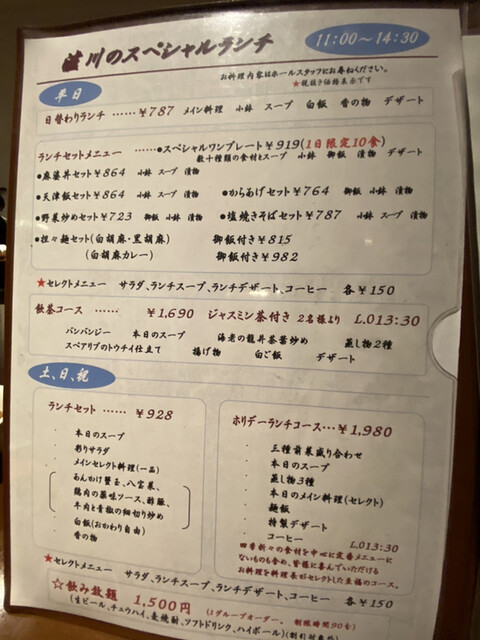 川のスペシャルランチ 11:00～14:30
お料理内容はホールスタッフにお尋ねください。
★税抜き価格表示です
平日
日替わりランチ …… ¥787 メイン料理 小鉢 スープ 白飯 香の物 デザート
ランチセットメニュー ……●スペシャルワンプレート¥919(1日限定10食)
数十種類の食材とスープ 小鉢 御飯 漬物 デザート
●麻婆丼セット¥864 小鉢 スープ 漬物
●天津飯セット¥864 小鉢 スープ 漬物 ●からあげセット¥764 御飯 小鉢 スープ 漬物
●野菜炒めセット¥723 御飯 小鉢 漬物 ●塩焼きそばセット¥787 小鉢 スープ 漬物
●担々麺セット(白胡麻・黒胡麻) 御飯付き¥815
(白胡麻カレー) 御飯付き¥982
★セレクトメニュー サラダ、ランチスープ、ランチデザート、コーヒー 各¥150
飲茶コース …… ¥1,690 ジャスミン茶付き 2名様より L.O13:30
バンバンジー 本日のスープ 海老の龍井茶葉炒め 蒸し物2種
スペアリブのトウチイ仕立て 揚げ物 白ご飯 デザート
土、日、祝
ランチセット …… ¥928
・ 本日のスープ
・ 彩りサラダ
・ メインセレクト料理(一品)
あんかけ蟹玉、八宝菜、
鶏肉の薬味ソース、酢豚、
牛肉と青椒の細切り炒め
・ 白飯(おかわり自由)
・ 香の物
ホリデーランチコース…¥1,980
・ 三種前菜盛り合わせ
・ 本日のスープ
・ 蒸し物3種
・ 本日のメイン料理(セレクト)
・ 麺飯
・ 特製デザート
・ コーヒー L.O13:30
四季折々の食材を中心に定番メニューに
ないものも含め、皆様に喜んでいただける
お料理を料理長がセレクトした至福のコース。
★セレクトメニュー サラダ、ランチスープ、ランチデザート、コーヒー 各¥150
☆飲み放題 1,500円 (1グループオーダー。 制限時間90分)
(生ビール、チュウハイ、麦焼酎、ソフトドリンク、ハイボール)